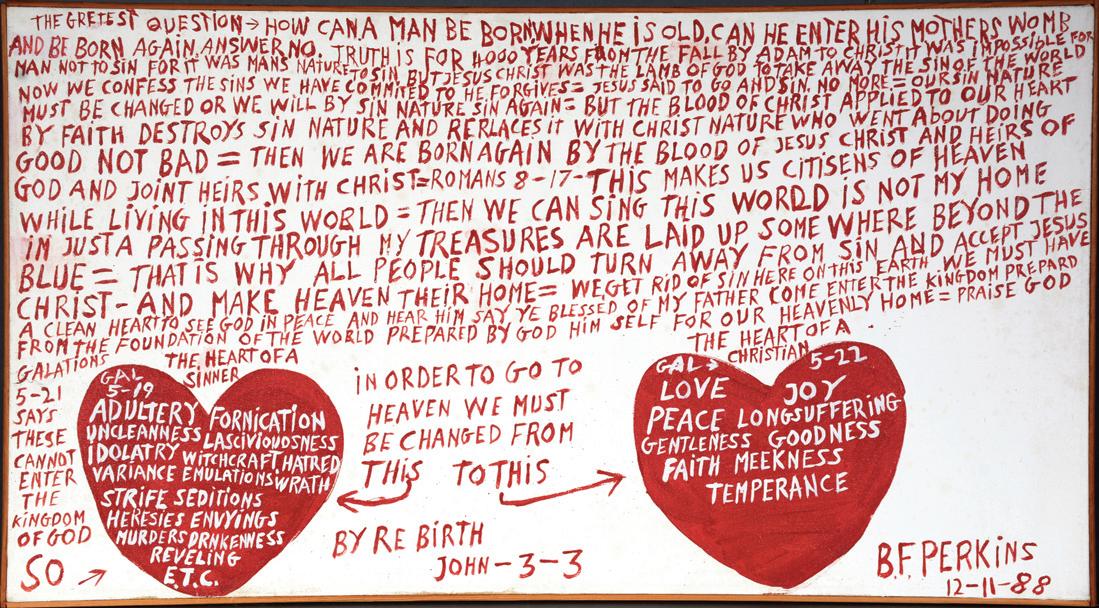 THE GRETEST QUESTION → HOW CAN A MAN BE BORN WHEN HE IS OLD, CAN HE ENTER HIS MOTHERS WOMB
AND BE BORN AGAIN. ANSWER NO. TRUTH IS FOR 4000 YEARS FROM THE FALL BY ADAM TO CHRIST IT WAS IMPOSSIBLE FOR
MAN NOT TO SIN FOR IT WAS MANS NATURE TO SIN, BUT JESUS CHRIST WAS THE LAMB OF GOD TO TAKE AWAY THE SIN OF THE WORLD
NOW WE CONFESS THE SINS WE HAVE COMMITED TO HE FORGIVES = JESUS SAID TO GO AND SIN. NO MORE = OUR SIN NATURE
MUST BE CHANGED OR WE WILL BY SIN NATURE SIN AGAIN = BUT THE BLOOD OF CHRIST APPLIED TO OUR HEART
BY FAITH DESTROYS SIN NATURE AND RERLACES IT WITH CHRIST NATURE WHO WENT ABOUT DOING
GOOD NOT BAD = THEN WE ARE BORN AGAIN BY THE BLOOD OF JESUS CHRIST AND HEIRS OF
GOD AND JOINT HEIRS WITH CHRIST = ROMANS 8-17- THIS MAKES US CITISENS OF HEAVEN
WHILE LIVING IN THIS WORLD = THEN WE CAN SING THIS WORLD IS NOT MY HOME
IM JUST A PASSING THROUGH MY TREASURES ARE LAID UP SOME WHERE BEYOND THE
BLUE = THAT IS WHY ALL PEOPLE SHOULD TURN AWAY FROM SIN AND ACCEPT JESUS
CHRIST - AND MAKE HEAVEN THEIR HOME = WE GET RID OF SIN HERE ON THIS EARTH WE MUST HAVE
A CLEAN HEART TO SEE GOD IN PEACE AND HEAR HIM SAY YE BLESSED OF MY FATHER COME ENTER THE KINGDOM PREPARD
FROM THE FOUNDATION OF THE WORLD PREPARED BY GOD HIM SELF FOR OUR HEAVENLY HOME = PRAISE GOD
GALATIONS
5-21
SAYS
THESE
CANNOT
ENTER
THE
KINGDOM
OF GOD
SO →
THE HEART OF A
SINNER
GAL
5-19
ADULTERY FORNICATION
UNCLEANNESS LASCIVIOUDSNESS
IDOLATRY WITCHCRAFT HATRED
VARIANCE EMULATIONS WRATH
STRIFE SEDITIONS
HERESIES ENVYINGS
MURDERS DRNKENNESS
REVELING
E.T.C.
IN ORDER TO GO TO
HEAVEN WE MUST
BE CHANGED FROM
THIS TO THIS
BY RE BIRTH
JOHN-3-3
THE HEART OF A
CHRISTIAN
GAL → 5-22
LOVE JOY
PEACE LONGSUFFERING
GENTLENESS GOODNESS
FAITH MEEKNESS
TEMPERANCE
B.F. PERKINS
12-11-88